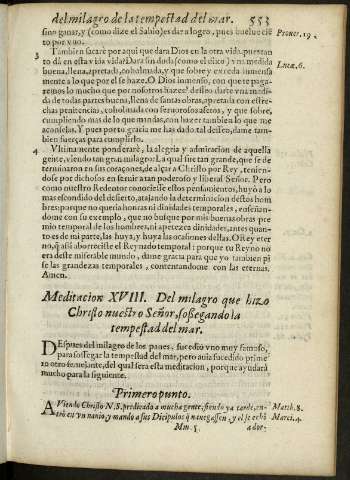 del milagro de la tempestad del mar. 553
sino ganar, y (como dize el Sabio) es dar a logro, pues buelue ciẽ Prouer. 19.
to por vno.
3 Tambien sacarè por aqui que dara Dios en la otra vida, pues tan
to dà en esta vida? Darà sin duda (como el dixo) vna medida Lucæ. 6.
buena, llena, apretada, colmada, y que sobre y exceda inmensa
mente a lo que por el se haze. O Dios inmenso, con que te paga-
remos lo mucho que por nosotros hazes? desseo darte vna medi-
da de todas partes buena, llena de santas obras, apretada con estre-
chas penitencias, cohalmada con feruorosos afectos, y que sobre,
cumpliendo mas de lo que mandas, con hazer tambien lo que me
aconsejas. Y pues por tu gracia me has dado tal desseo, dame tam-
bien fuerças para cumplirlo.
4 Vltimamente ponderarè, la alegria y admiracion de aquella
gente, viendo tan gran milagro: La qual fue tan grande, que se de
terminaron en sus coraçones, de alçar a Christo por Rey, tenien-
dose por dichosos en seruir a tan poderoso y liberal Señor. Pero
como nuestro Redentor conociesse estos pensamientos, huyò a lo
mas escondido del desierto, atajando la determinacion destos hom
bres: porque no queria honras ni dinidades temporales, enseñan-
dome con su exemplo, que no busque por mis buenas obras pre
mio temporal de los hombres, ni apetezca dinidades, antes quan-
to es de mi parte, las huya, y huya las ocasiones dellas. O Rey eter
no, que assi aborreciste el Reynado temporal: porque tu Reyno no
era deste miserable mundo, dame gracia para que yo tambien pi
se las grandezas temporales, contentandome con las eternas.
Amen.
Meditacion XVIII. Del milagro que hizo
Christo nuestro Señor, sossegando la
tempestad del mar.
DEspues del milagro de los panes, sucediò vno muy famoso,
para sossegar la tempestad del mar, pero auia sucedido prime
ro otro semejante, del qual sera esta meditacion, porque ayudarà
mucho para la siguiente.
Primero punto.
AViendo Christo N.S. predicado a mucha gente, siendo ya tarde, en- Matth. 8.
trò en vn nauio, y mandò a sus Dicipulos q̃ nauegassen, y el se echò Marci. 4
Mm 5 a dor-